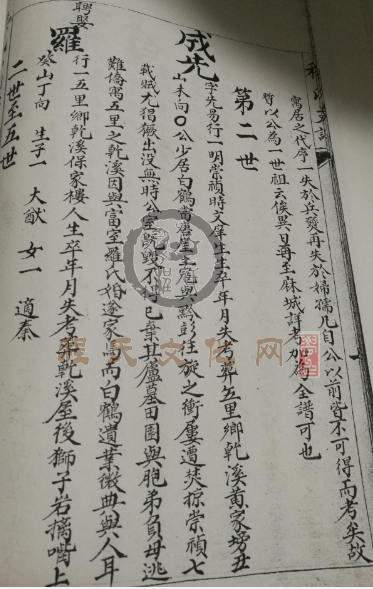 寓居之代序一失於兵燹再失於婦孺凡自公以前皆不可得而考矣故
暫以公為一世祖云俟異日再至麻城詳考加為全譜可也
第二世
成先
字先易行一明崇禎時文庠生生卒年月失考葬五里鄉乾溪黃家塝丑
山未向〇公少居白鶴當
與黔彭往旋之衝屢遭焚掠崇禎七
載賊尤猖獗出沒無時公室既毀不得已棄其廬墓田園與胞弟負母逃
難僑寓五里之乾溪因與富室羅氏婚遂家焉而白鶴遺業徵典與人耳
聘娶
羅
行一五里鄉乾溪保家樓人生卒年月失考葬乾溪屋後獅子岩
上
癸山丁向 生子一 大猷 女一 適秦
二世至五世
程天文化网